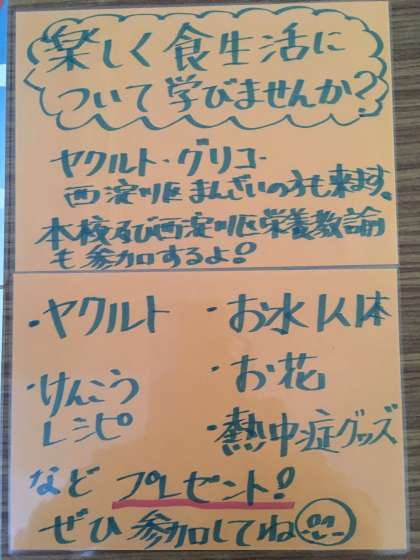 楽しく食生活に
ついて学びませんか?
ヤクルト・グリコ・
西淀川区まんざいの方も来ます。
本校及び西淀川区栄養教諭
も参加するよ!
・ヤクルト
・お水 1人1体
・けんこう
レシピ
・お花
・熱中症グッズ
など プレゼント!
ぜひ参加してね